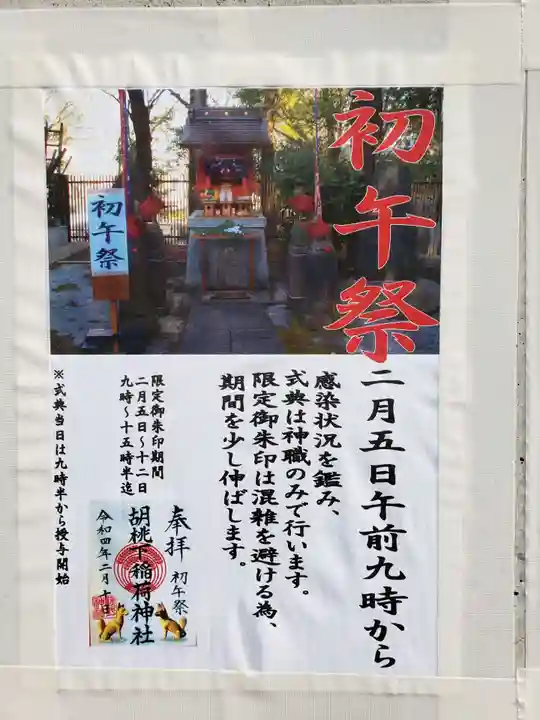 初午祭
初午祭
二月五日午前九時から
感染状況を鑑み、
式典は神職のみで行います。
限定御朱印は混雑を避ける為、
期間を少し伸ばします。
限定御朱印期間
二月五日～十二日
九時～十五時半迄
※式典当日は九時半から授与開始
奉拝
初午祭
胡桃下稲荷神社
令和四年二月十日